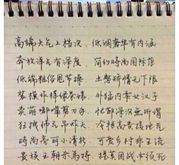 高端大气上档次 低调奢华有内涵
奔放洋气有深度 简约时尚国际范
低端粗俗甩节操 土憋矫情无下限
装模作样绿茶婊 外猛内柔女汉子
卖萌嘟嘴剪刀手 忧郁深沉无所谓
狂拽帅气吊炸天 冷艳高贵接地气
时尚亮丽小清新 可爱乡村非主流
贵族王朝杀马特